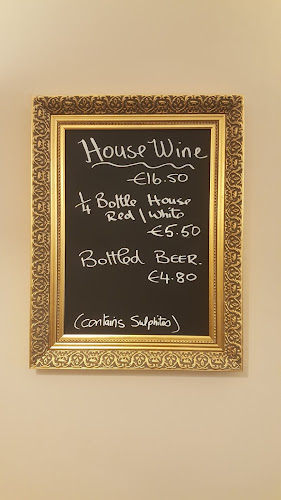 House Wine
€16.50
1/4 Bottle House
Red / White
€5.50
Bottled BEER.
€4.80
(contains Sulphites)